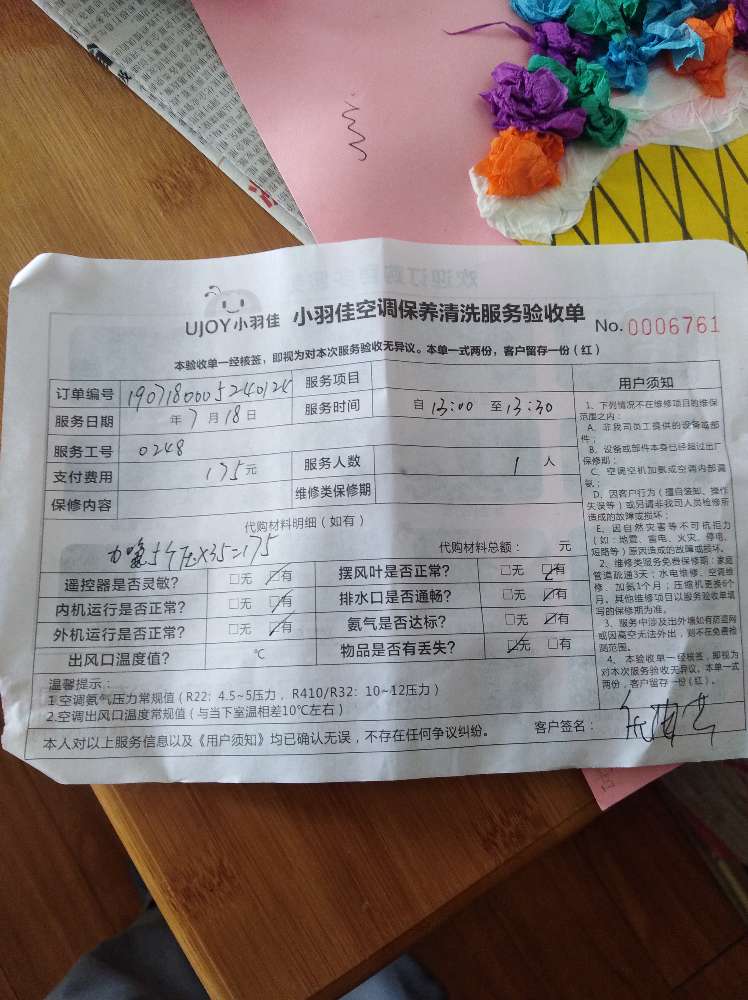 UJOY小羽佳 小羽佳空调保养清洗服务验收单 No.0006761
本验收单一经核签，即视为对本次服务验收无异议。本单一式两份，客户留存一份（红）
订单编号 1907180005240124 服务项目
服务日期 年7月18日 服务时间 自13:00至13:30
服务工号 0248
支付费用 175元 服务人数 1人
保修内容 维修类保修期
代购材料明细（如有）
5个压×35=175 代购材料总额： 元
遥控器是否灵敏？ □无 ☑有 摆风叶是否正常？ □无 ☑有
内机运行是否正常？ □无 ☑有 排水口是否通畅？ □无 ☑有
外机运行是否正常？ □无 ☑有 氨气是否达标？ □无 ☑有
出风口温度值？ ℃ 物品是否有丢失？ ☑无 □有
温馨提示：
1.空调氨气压力常规值（R22：4.5~5压力，R410/R32：10~12压力）
2.空调出风口温度常规值（与当下室温相差10℃左右）
本人对以上服务信息以及《用户须知》均已确认无误，不存在任何争议纠纷。 客户签名：
用户须知
1、下列情况不在维修项目的维保
范围之内：
A、非我司员工提供的设备或部
件；
B、设备或部件本身已经超过出厂
保修期；
C、空调空机加氨或空调内部漏
氨；
D、因客户行为（擅自装卸、操作
失误等）或另请非我司人员检修所
造成的故障或损坏；
E、因自然灾害等不可抗拒力
（如：地震、雷电、火灾、停电、
短路等）原因造成的故障或损坏。
2、维修类服务免费保修期：家庭
管道疏通3天；水电维修、空调维
修、加氨1个月；压缩机更换6个
月，其他维修项目以服务验收单填
写的保修期为准。
3、服务中涉及出外墙如有防盗网
或因高空无法外出，则不在免费检
测范围。
4、本验收单一经核签，即视为
对本次服务验收无异议。本单一式
两份，客户留存一份（红）。